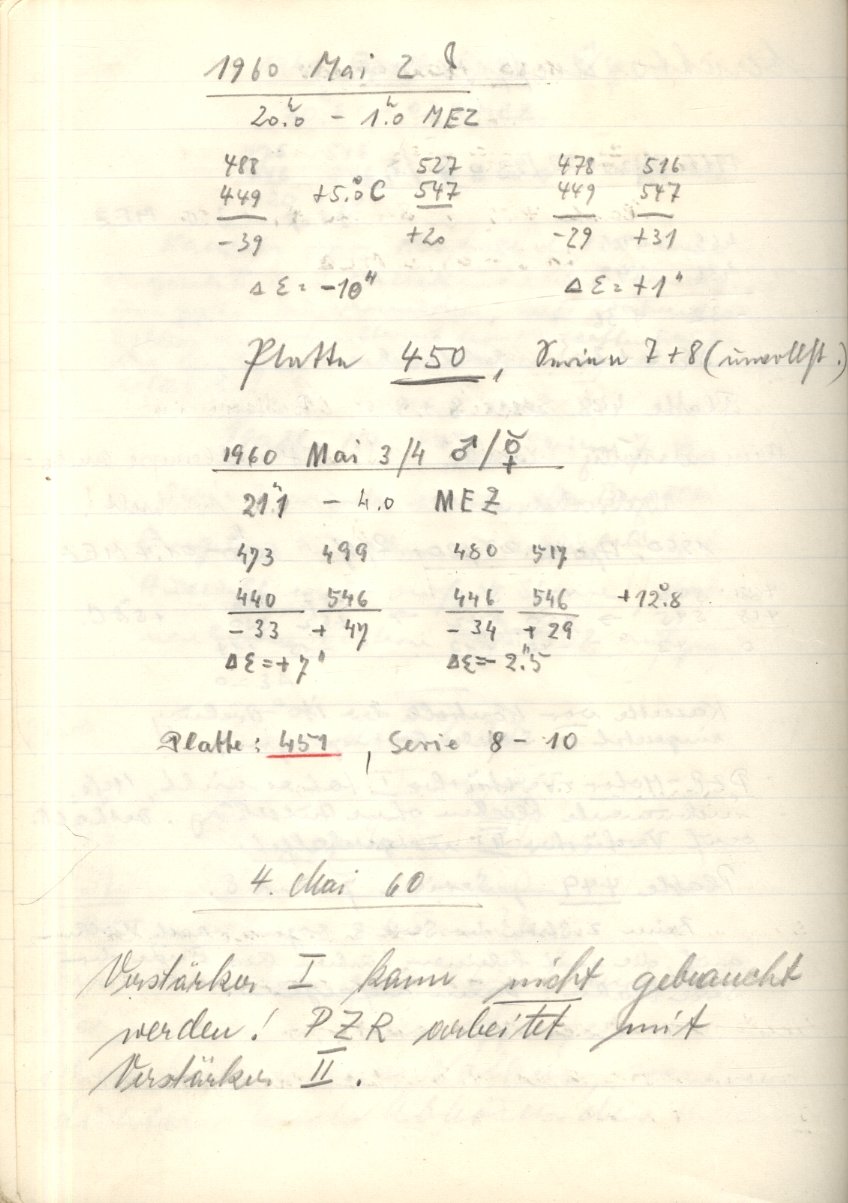 1960 Mai 2 ☾
20.ʰ0 – 1.ʰ0 MEZ
488 527 478 516
449 +5.°0 C 547 449 547
-39 +20 -29 +31
Δ ε = -10" Δ ε = +1"
Platte 450, Serien 7+8 (unvollst.)
1960 Mai 3/4 ♂/☿
21.ʰ1 – 4.0 MEZ
473 499 480 517
440 546 446 546 +12.°8
-33 +47 -34 +29
Δε=+7" Δε=-2."5
Platte: 451, Serie 8-10
4. Mai 60
Verstärker I kann nicht gebraucht
werden! PZR arbeitet mit
Verstärker II.